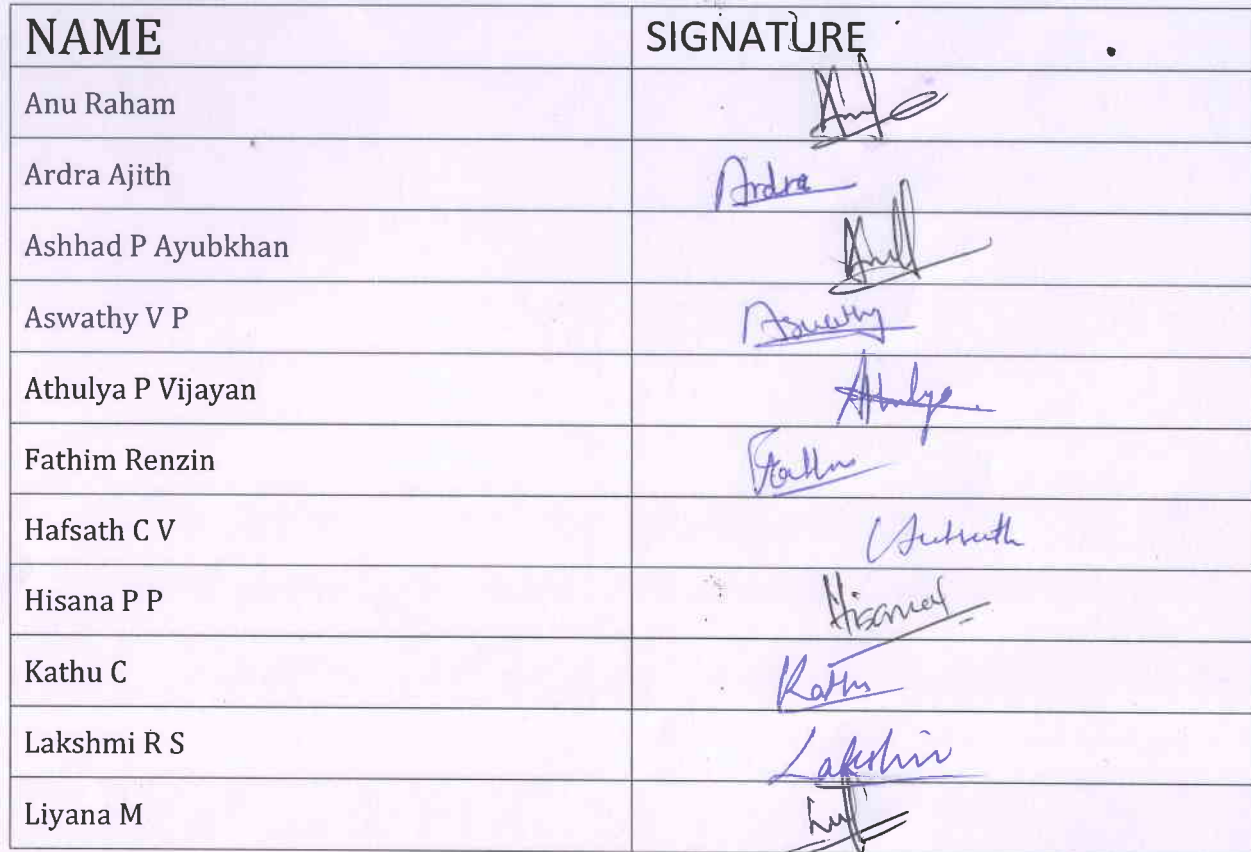 NAME SIGNATURE
Anu Raham
Ardra Ajith Ardra
Ashhad P Ayubkhan
Aswathy V P Aswathy
Athulya P Vijayan Athulya
Fathim Renzin
Hafsath C V
Hisana P P Hisana
Kathu C Kathu
Lakshmi R S Lakshmi
Liyana M